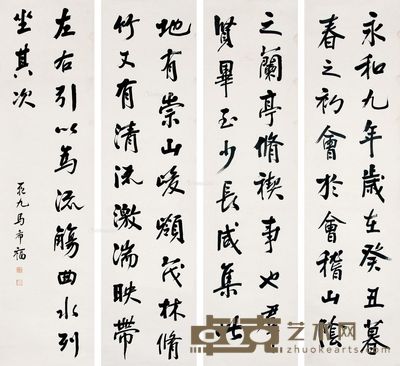 永和九年歲在癸丑暮
春之初會於會稽山陰
之蘭亭脩禊事也羣
賢畢至少長咸集此
地有崇山峻領茂林脩
竹又有清流激湍映帶
左右引以為流觴曲水列
坐其次
九馬福
卓克艺术网
zhuokearts.com